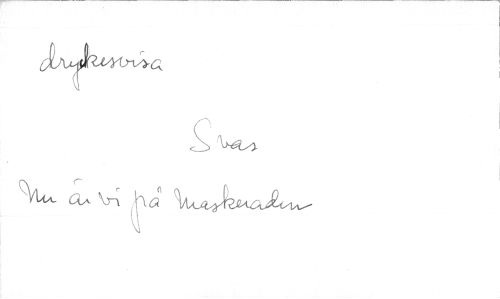 dryckesvisa
Svas
Nu är vi på Maskeraden